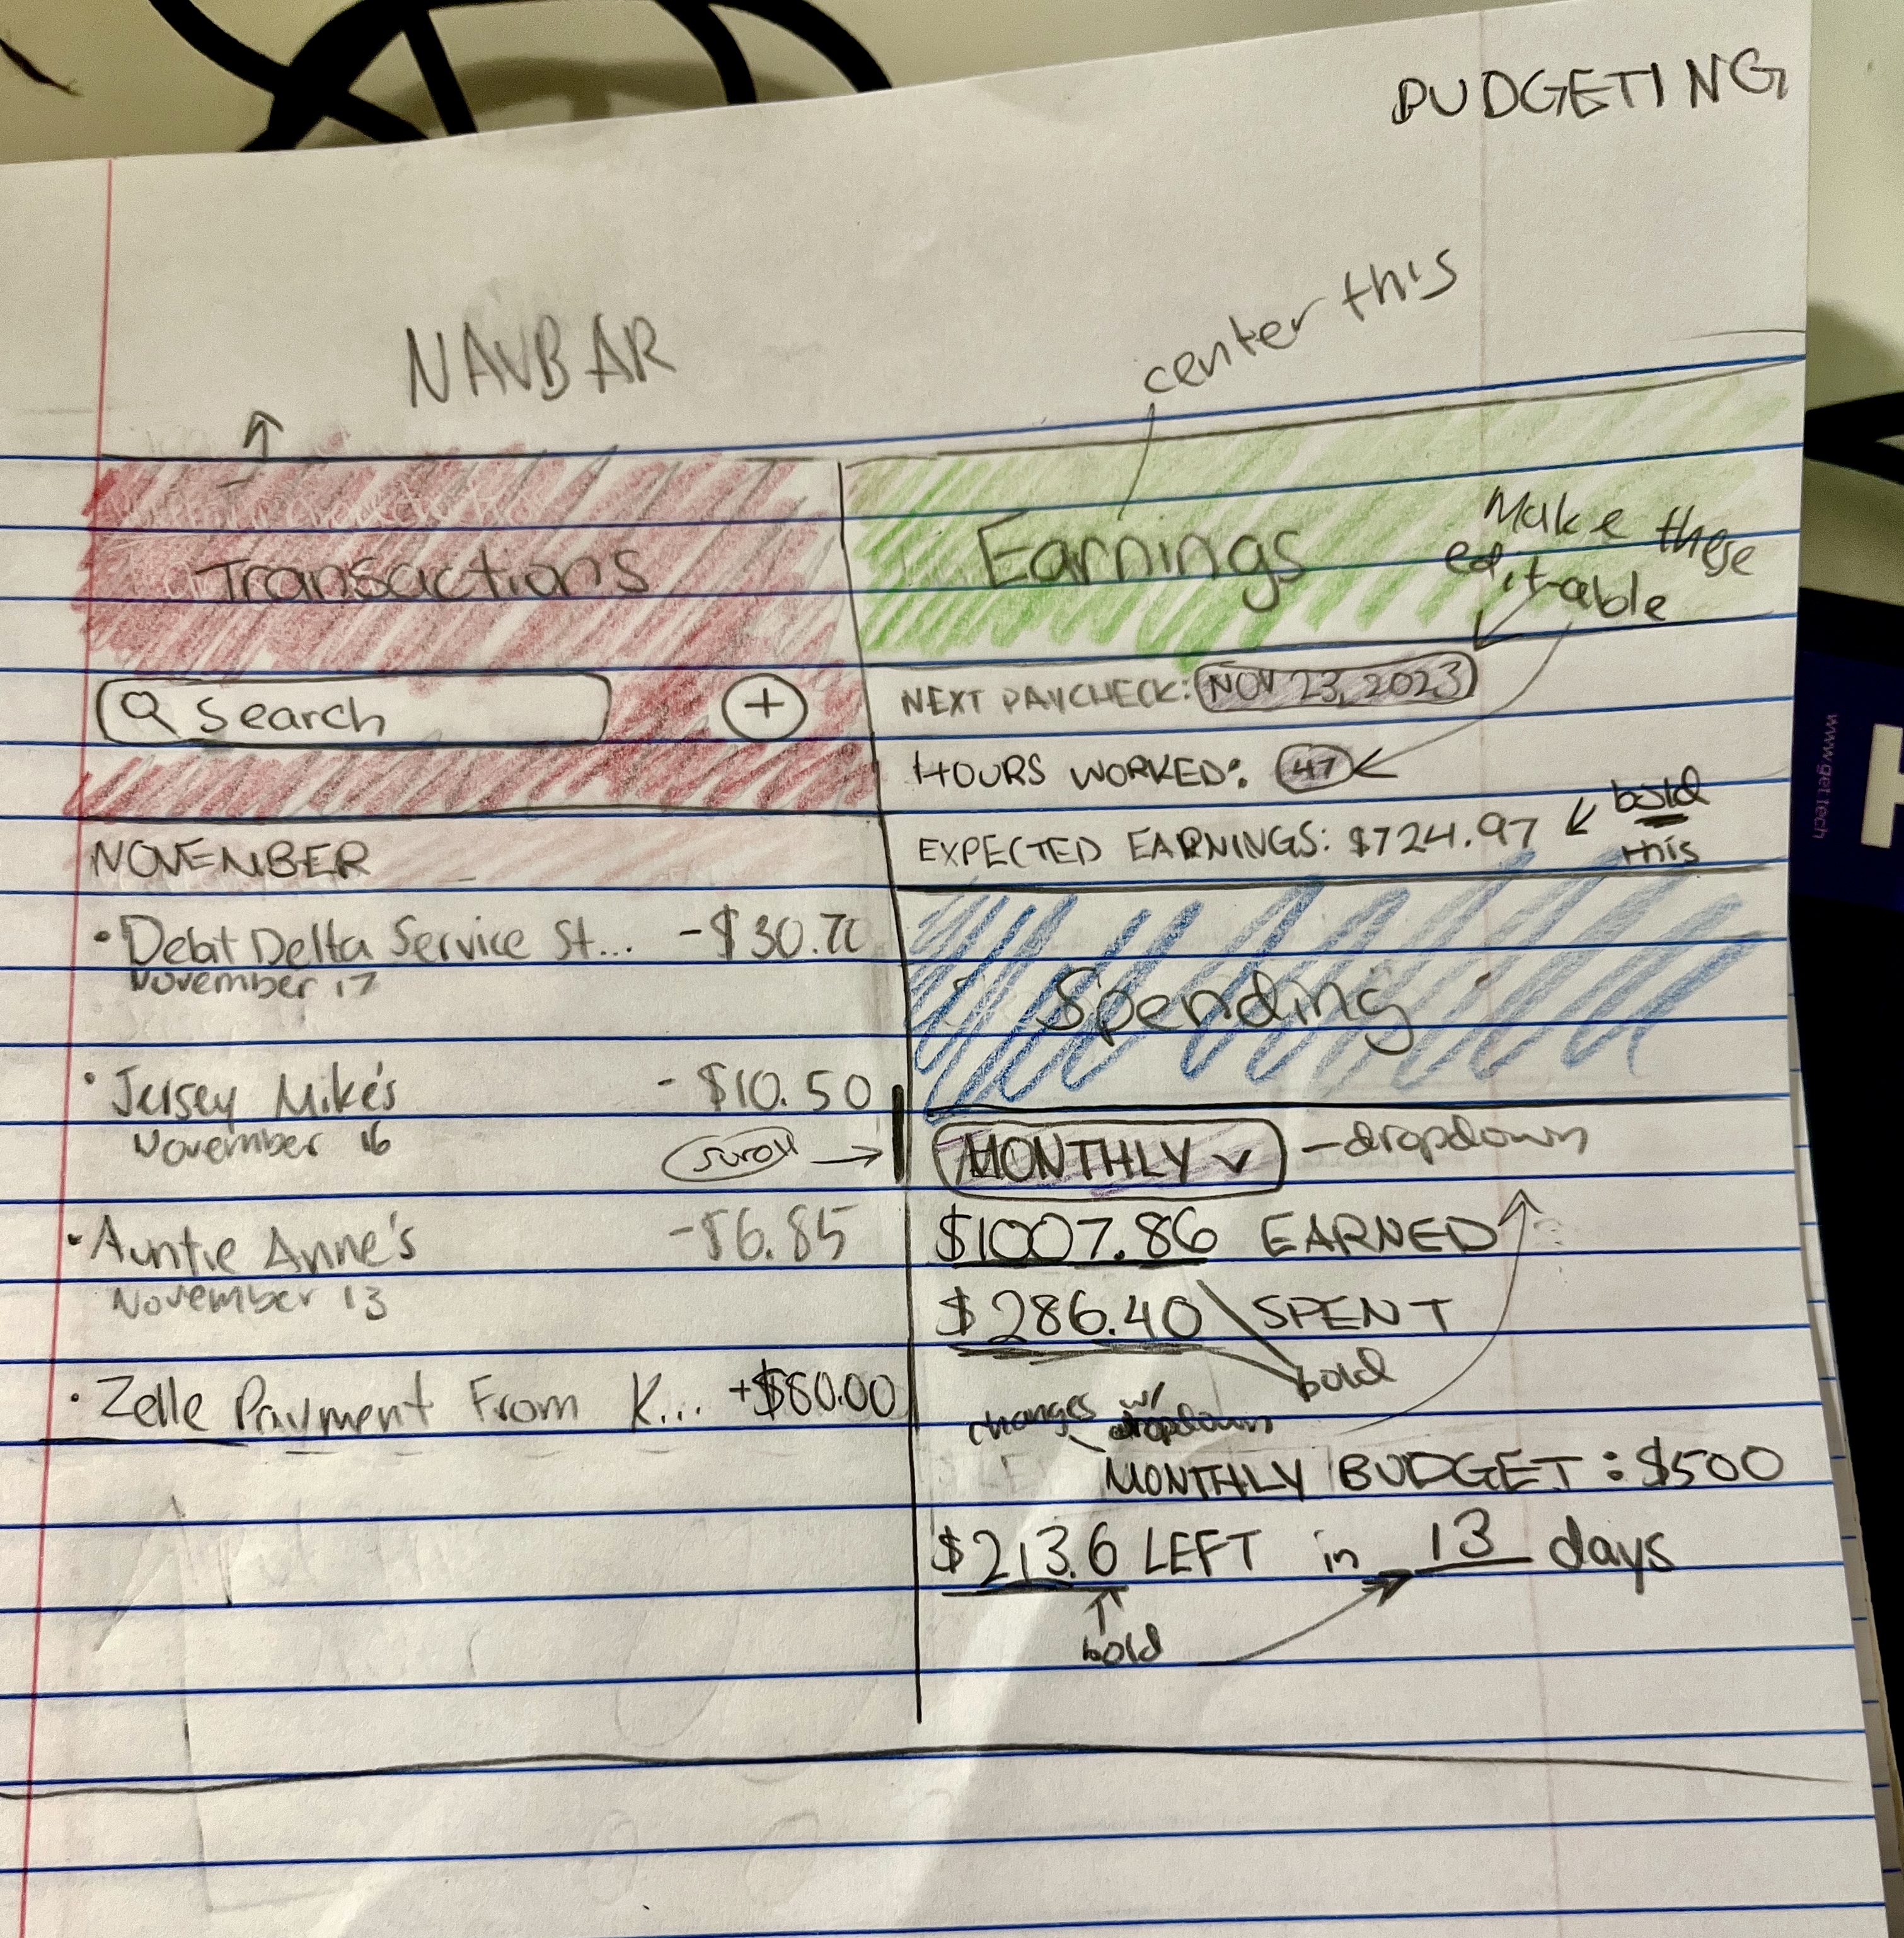 BUDGETING
NAVBAR
center this
Transactions
Earnings
Make these
edit-able
Search
+
NEXT PAYCHECK: NOV 23, 2023
HOURS WORKED: 47
EXPECTED EARNINGS: $724.97
bold
this
NOVEMBER
• Debit Delta Service St... -$30.70
November 17
Spending
• Jersey Mike's - $10.50
November 16
scroll
MONTHLY
- dropdown
• Auntie Anne's -$6.85
November 13
$1007.86 EARNED
$286.40 SPENT
bold
• Zelle Payment From K... +$80.00
changes w/
dropdown
MONTHLY BUDGET: $500
$213.6 LEFT in 13 days
bold
www.get.tech